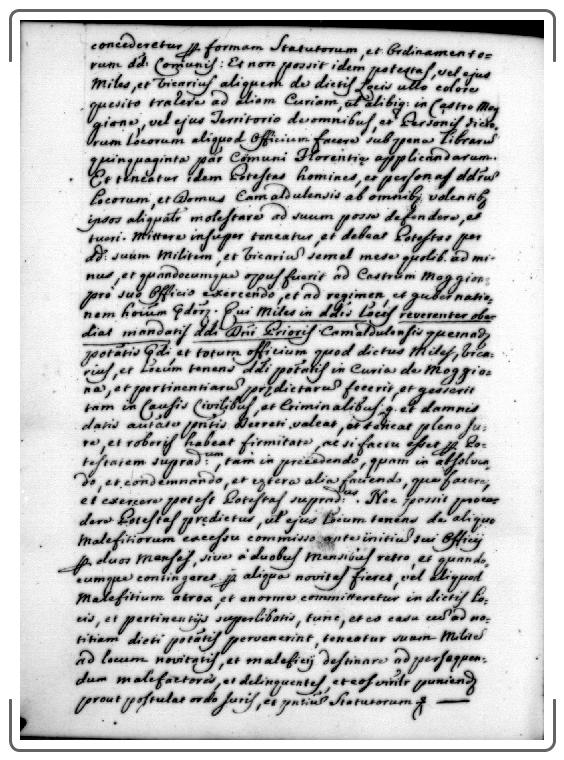 concederetur ꝑ formam Statutorum, et Ordinamento-
rum dd: Comunis: Et non possit idem potestas, vel ejus
Miles, et Vicarius aliquem de dictis Locis ullo colore
quesito trahere ad aliam Curiam, ul alibi in Castro Mog
giona, vel ejus Territorio de omnibus, et Personis dicto-
rum Locorum aliquod Officium facere sub pena librarum
quinquaginta par Comuni Florentie applicandarum.
Et teneatur idem Potestas homines, et personas
Locorum, et Domus Camaldulensis ab omnibus volentib
ipsos aliqualr molestare ad suum posse defendere, et
tueri. Mittere insuper teneatur, et debeat Potestas per
dd: suum Militem, et Vicariu semel mese quolib. ad mi-
nus, et quandocumque opus fuerit ad Castrum Moggion:
pro suo Officio exercendo, et ad regimen, et gubernatio-
nem hominum Qui Miles in ddis Locis reverenter obe-
diat mandatis ddi Dni Prioris Camaldulensis
potatis et totum officium quod dictus Miles, Vica-
rius, et Locum tenens ddi potatis in Curia de Moggio-
na, et pertinentiarum predictarum fecerit, et gesserit
tam in Causis Civilibus, et Criminalibus, q. et damnis
datis autate pntis Decreti valeat, et teneat pleno Ju-
re, et roboris habeat firmitate, ac si factu esset ꝑ Po-
testatem suprad:um, tam in precedendo, quam in absolven
do, et condemnando, et cetera alia faciendo, que facere,
et exercere potest Potestas suprad:us. Nec possit proce-
dere Potestas predictus, ul ejus Locum tenens de aliquo
Malefitiorum excessu commisso ante initiu sui Officij
ꝑ duos Menses, sive à duobus Mensibus retro, et quando,
cumque contingeret ꝑ aliqua novitas fieret, vel aliquod
Malefitium atrox, et enorme committeretur in dictis Lo-
cis, et pertinentijs superlibatis, tunc, et eo casu ad no-
titiam dicti potatis pervenerint, teneatur suum Milite
ad locum novitatis, et maleficij destinare ad persequen-
dum malefactores, et delinquentes, et eos virilr puniend
prout postulat ordo Juris, et pntiu Statutorum